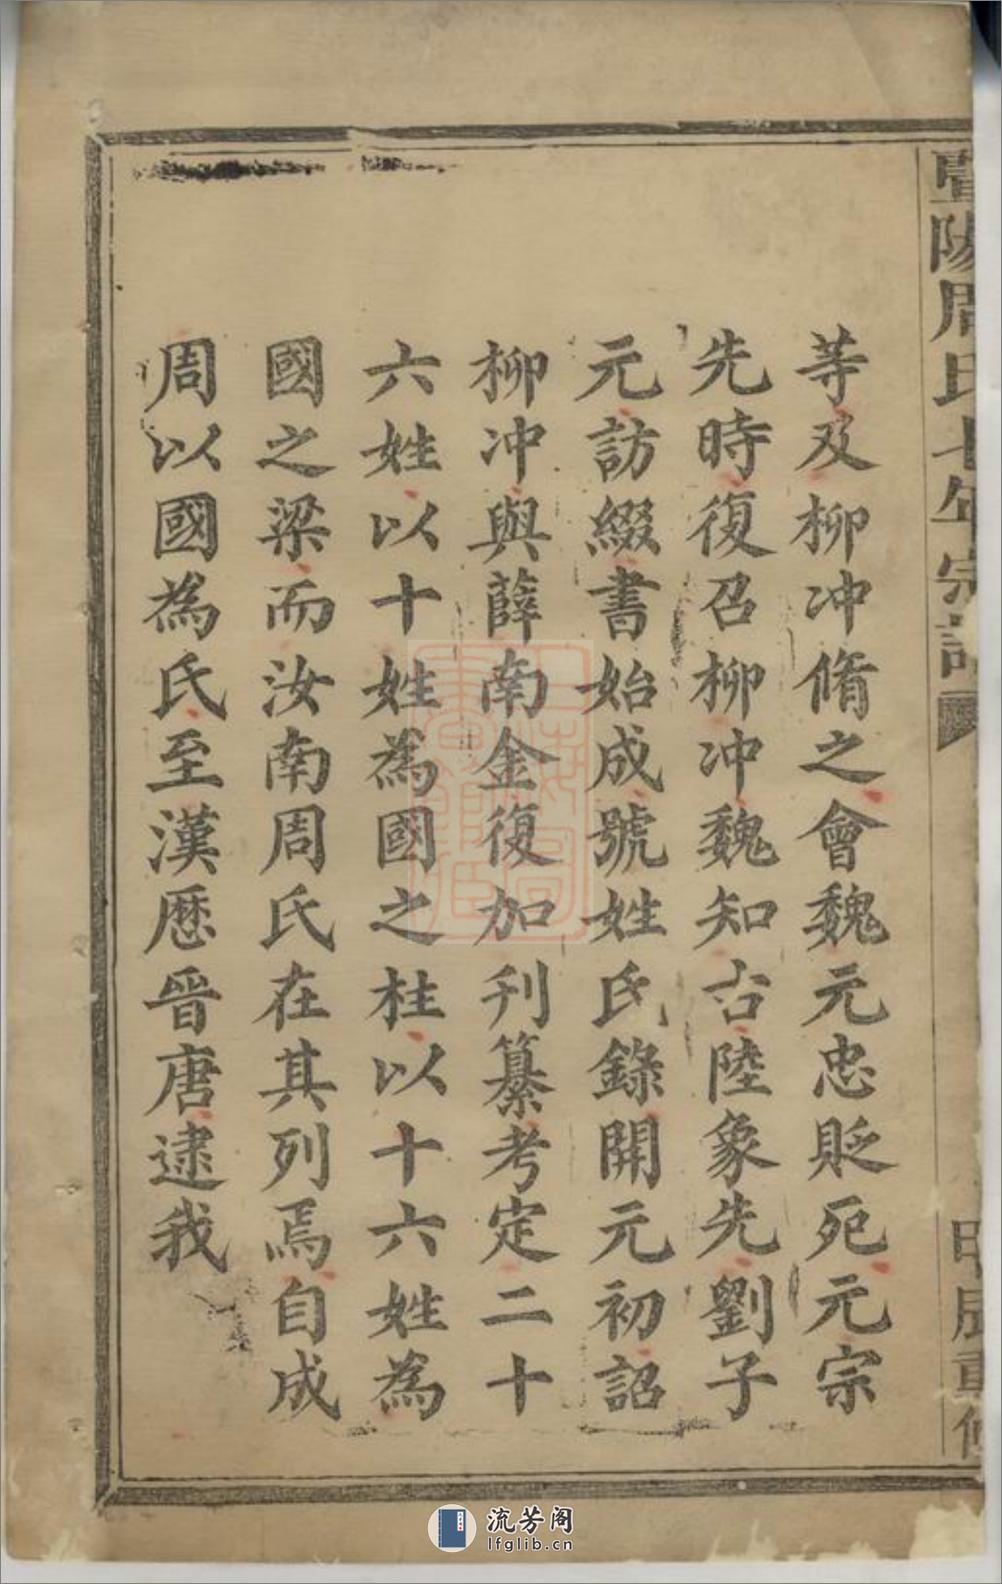 暨陽周氏七年宗譜
甲辰重修
等及柳冲脩之會魏元忠貶死元宗
先時復召柳冲魏知古陸象先劉子
元訪綴書始成號姓氏錄開元初詔
柳冲與薛南金復加刊纂考定二十
六姓以十姓為國之柱以十六姓為
國之梁而汝南周氏在其列焉自成
周以國為氏至漢歷晉唐逮我
流芳阁
lfglib.cn